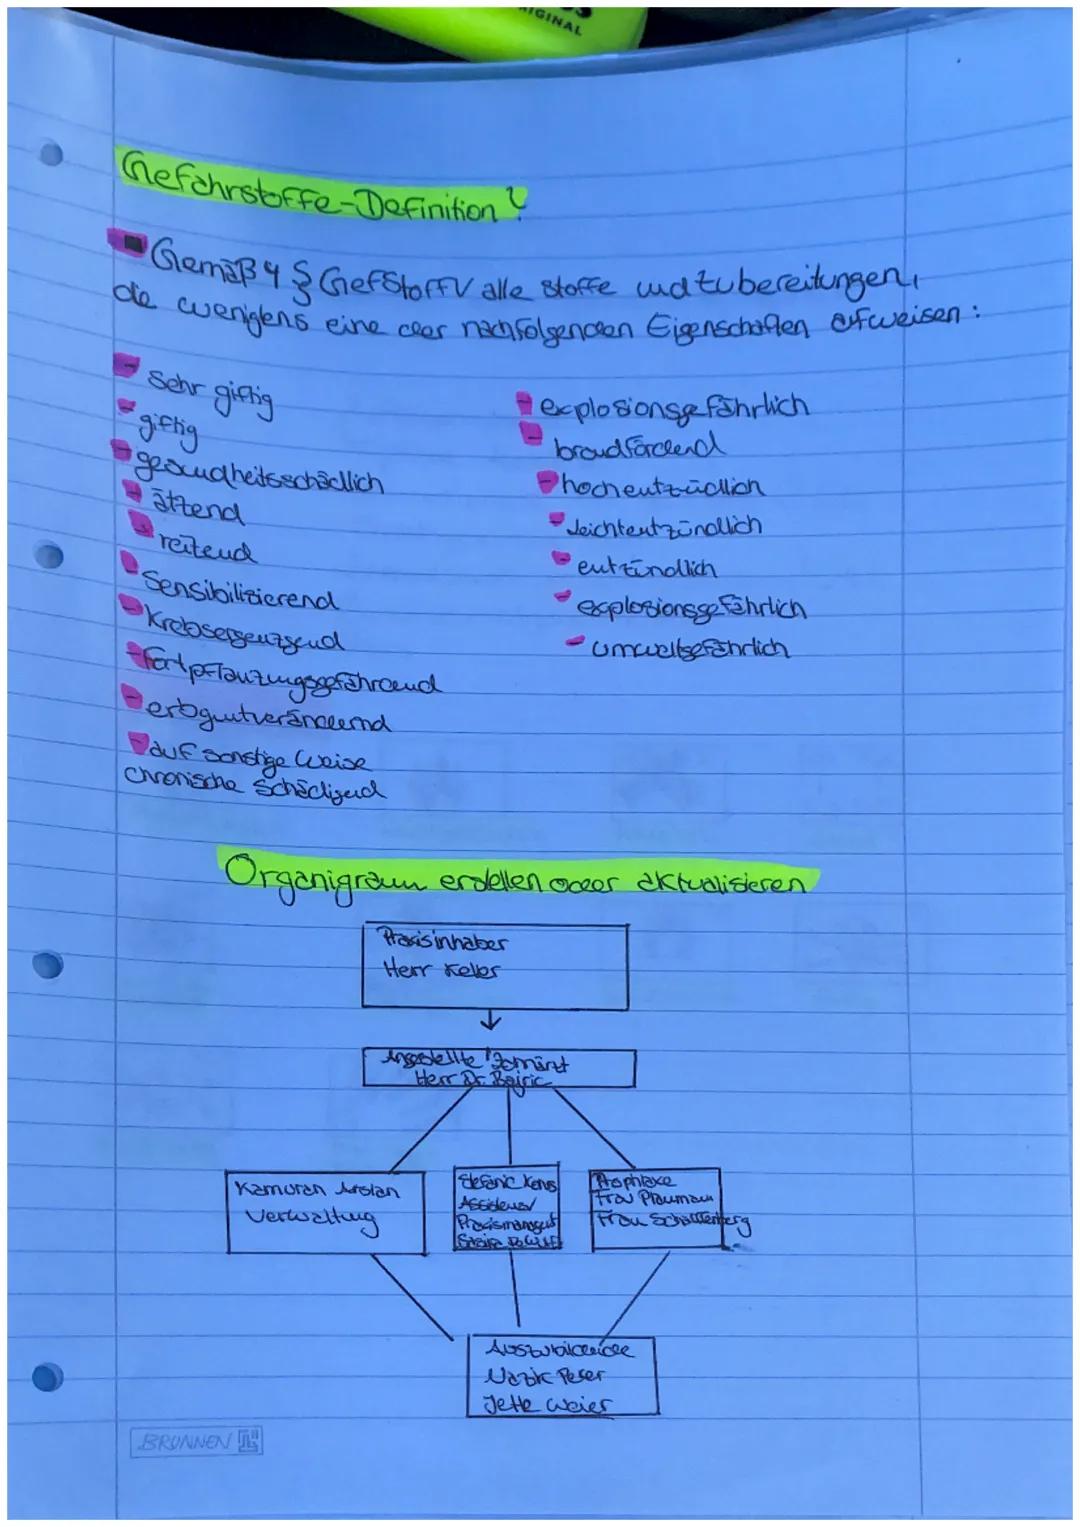 ORIGINAL
Gefahrstoffe-Definition?
Gemäß 4 § GefStoffV alle stoffe und zubereitungen,
die wenigens eine der nachfolgenden Eigenschaften aufweisen:
- Sehr giftig
- giftig
- gesundheitsschädlich
- ätzend
- reizend
- Sensibilisierend
- Krebserzeugend
- Fortpflanzungsgefährdend
- erbgutverändernd
- auf sonstige Weise
chronische Schädigend
- explosionsgefährlich
- brandfördend
- hochentzündlich
- leichtentzündlich
- entzündlich
- explosionsgefährlich
- umweltgefährlich
Organigramm erstellen oder aktualisieren
Praxisinhaber
Herr Keller
Angestellte Zahnarzt
Herr Dr. Bajric
Kamuran Arslan
Verwaltung
Stefanie
Assistenz/
Praxismanagerin
Prophlaxe
Frau Pflaumann
Frau Schattenberg
Auszubildende
Peker
Jette Weier
BRUNNEN